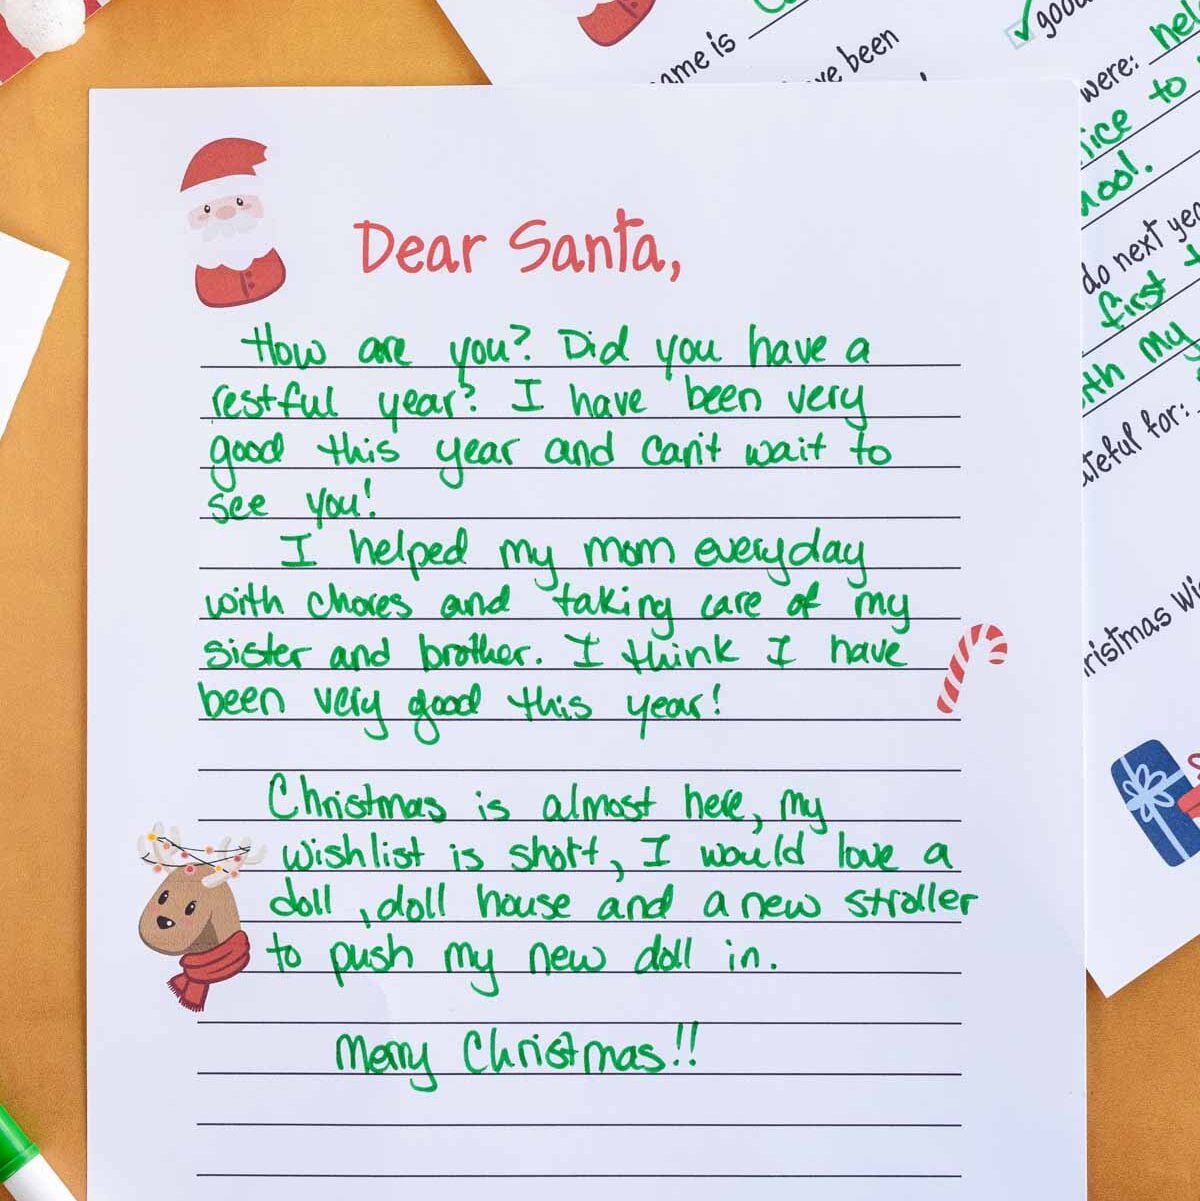 Dear Santa,
How are you? Did you have a
restful year? I have been very
good this year and can't wait to
see you!
I helped my mom everyday
with chores and taking care of my
sister and brother. I think I have
been very good this year!
Christmas is almost here, my
wishlist is short, I would love a
doll, doll house and a new stroller
to push my new doll in.
Merry Christmas!!
name is
have been
good
were:
nice to
school.
do next year
first
with my
grateful for:
Christmas